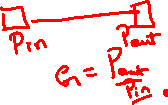 Pin Pout
G = Pout
Pin